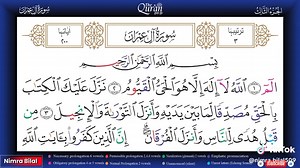 الجزء الثالث
Quran
ترتيبها ٣
سورة آل عمران
آياتها ٢٠٠
بِسْمِ اللَّهِ الرَّحْمَٰنِ الرَّحِيمِ
الٓمٓ ١ اللَّهُ لَآ إِلَٰهَ إِلَّا هُوَ الْحَيُّ الْقَيُّومُ ٢ نَزَّلَ عَلَيْكَ الْكِتَٰبَ
بِالْحَقِّ مُصَدِّقًا لِّمَا بَيْنَ يَدَيْهِ وَأَنزَلَ التَّوْرَىٰةَ وَالْإِنجِيلَ ٣ مِن
قَبْلُ هُدًى لِّلنَّاسِ وَأَنزَلَ الْفُرْقَانَ إِنَّ الَّذِينَ كَفَرُوا بِـَٔايَٰتِ اللَّهِ
TikTok
Nimra Bilal